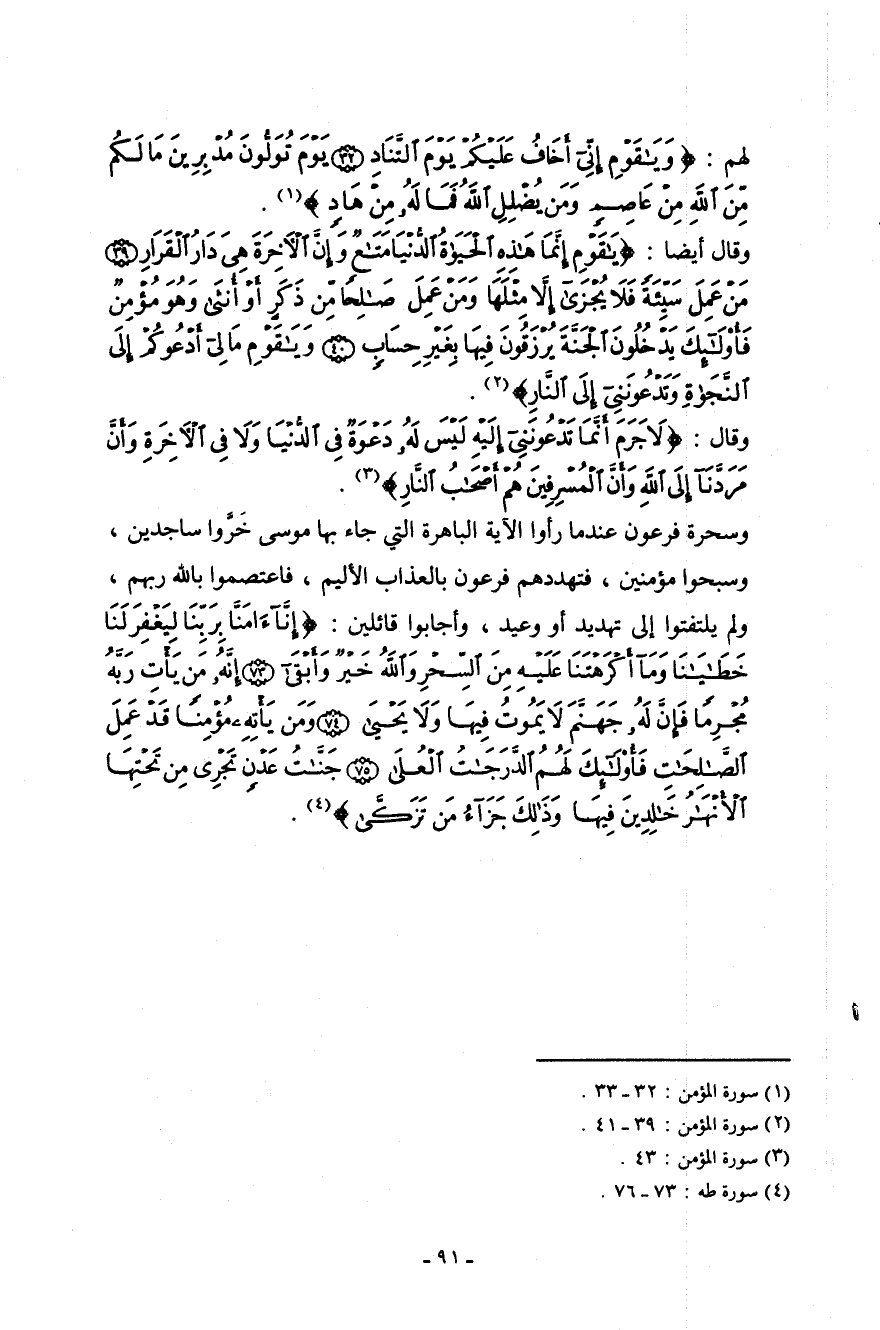 لهم : ﴿ وَيَـٰقَوْمِ إِنِّىٓ أَخَافُ عَلَيْكُمْ يَوْمَ ٱلتَّنَادِ ۝٣٢ يَوْمَ تُوَلُّونَ مُدْبِرِينَ مَا لَكُم
مِّنَ ٱللَّهِ مِنْ عَاصِمٍ وَمَن يُضْلِلِ ٱللَّهُ فَمَا لَهُۥ مِنْ هَادٍ ﴾(١) .
وقال أيضا : ﴿ يَـٰقَوْمِ إِنَّمَا هَـٰذِهِ ٱلْحَيَوٰةُ ٱلدُّنْيَا مَتَـٰعٌ وَإِنَّ ٱلْـَٔاخِرَةَ هِىَ دَارُ ٱلْقَرَارِ ۝٣٩
مَنْ عَمِلَ سَيِّئَةً فَلَا يُجْزَىٰٓ إِلَّا مِثْلَهَا وَمَنْ عَمِلَ صَـٰلِحًا مِّن ذَكَرٍ أَوْ أُنثَىٰ وَهُوَ مُؤْمِنٌ
فَأُو۟لَـٰٓئِكَ يَدْخُلُونَ ٱلْجَنَّةَ يُرْزَقُونَ فِيهَا بِغَيْرِ حِسَابٍ ۝٤٠ وَيَـٰقَوْمِ مَا لِىٓ أَدْعُوكُمْ إِلَى
ٱلنَّجَوٰةِ وَتَدْعُونَنِىٓ إِلَى ٱلنَّارِ ﴾(٢) .
وقال : ﴿ لَا جَرَمَ أَنَّمَا تَدْعُونَنِىٓ إِلَيْهِ لَيْسَ لَهُۥ دَعْوَةٌ فِى ٱلدُّنْيَا وَلَا فِى ٱلْـَٔاخِرَةِ وَأَنَّ
مَرَدَّنَآ إِلَى ٱللَّهِ وَأَنَّ ٱلْمُسْرِفِينَ هُمْ أَصْحَـٰبُ ٱلنَّارِ ﴾(٣) .
وسحرة فرعون عندما رأوا الآية الباهرة التي جاء بها موسى خَرَّوا ساجدين ،
وسبحوا مؤمنين ، فتهددهم فرعون بالعذاب الأليم ، فاعتصموا بالله ربهم ،
ولم يلتفتوا إلى تهديد أو وعيد ، وأجابوا قائلين : ﴿ إِنَّآ ءَامَنَّا بِرَبِّنَا لِيَغْفِرَ لَنَا
خَطَـٰيَـٰنَا وَمَآ أَكْرَهْتَنَا عَلَيْهِ مِنَ ٱلسِّحْرِ وَٱللَّهُ خَيْرٌ وَأَبْقَىٰٓ ۝٧٣ إِنَّهُۥ مَن يَأْتِ رَبَّهُۥ
مُجْرِمًا فَإِنَّ لَهُۥ جَهَنَّمَ لَا يَمُوتُ فِيهَا وَلَا يَحْيَىٰ ۝٧٤ وَمَن يَأْتِهِۦ مُؤْمِنًا قَدْ عَمِلَ
ٱلصَّـٰلِحَـٰتِ فَأُو۟لَـٰٓئِكَ لَهُمُ ٱلدَّرَجَـٰتُ ٱلْعُلَىٰ ۝٧٥ جَنَّـٰتُ عَدْنٍ تَجْرِى مِن تَحْتِهَا
ٱلْأَنْهَـٰرُ خَـٰلِدِينَ فِيهَا وَذَٰلِكَ جَزَآءُ مَن تَزَكَّىٰ ﴾(٤) .
(١) سورة المؤمن : ٣٢ ـ ٣٣ .
(٢) سورة المؤمن : ٣٩ ـ ٤١ .
(٣) سورة المؤمن : ٤٣ .
(٤) سورة طه : ٧٣ ـ ٧٦ .
ـ ٩١ ـ